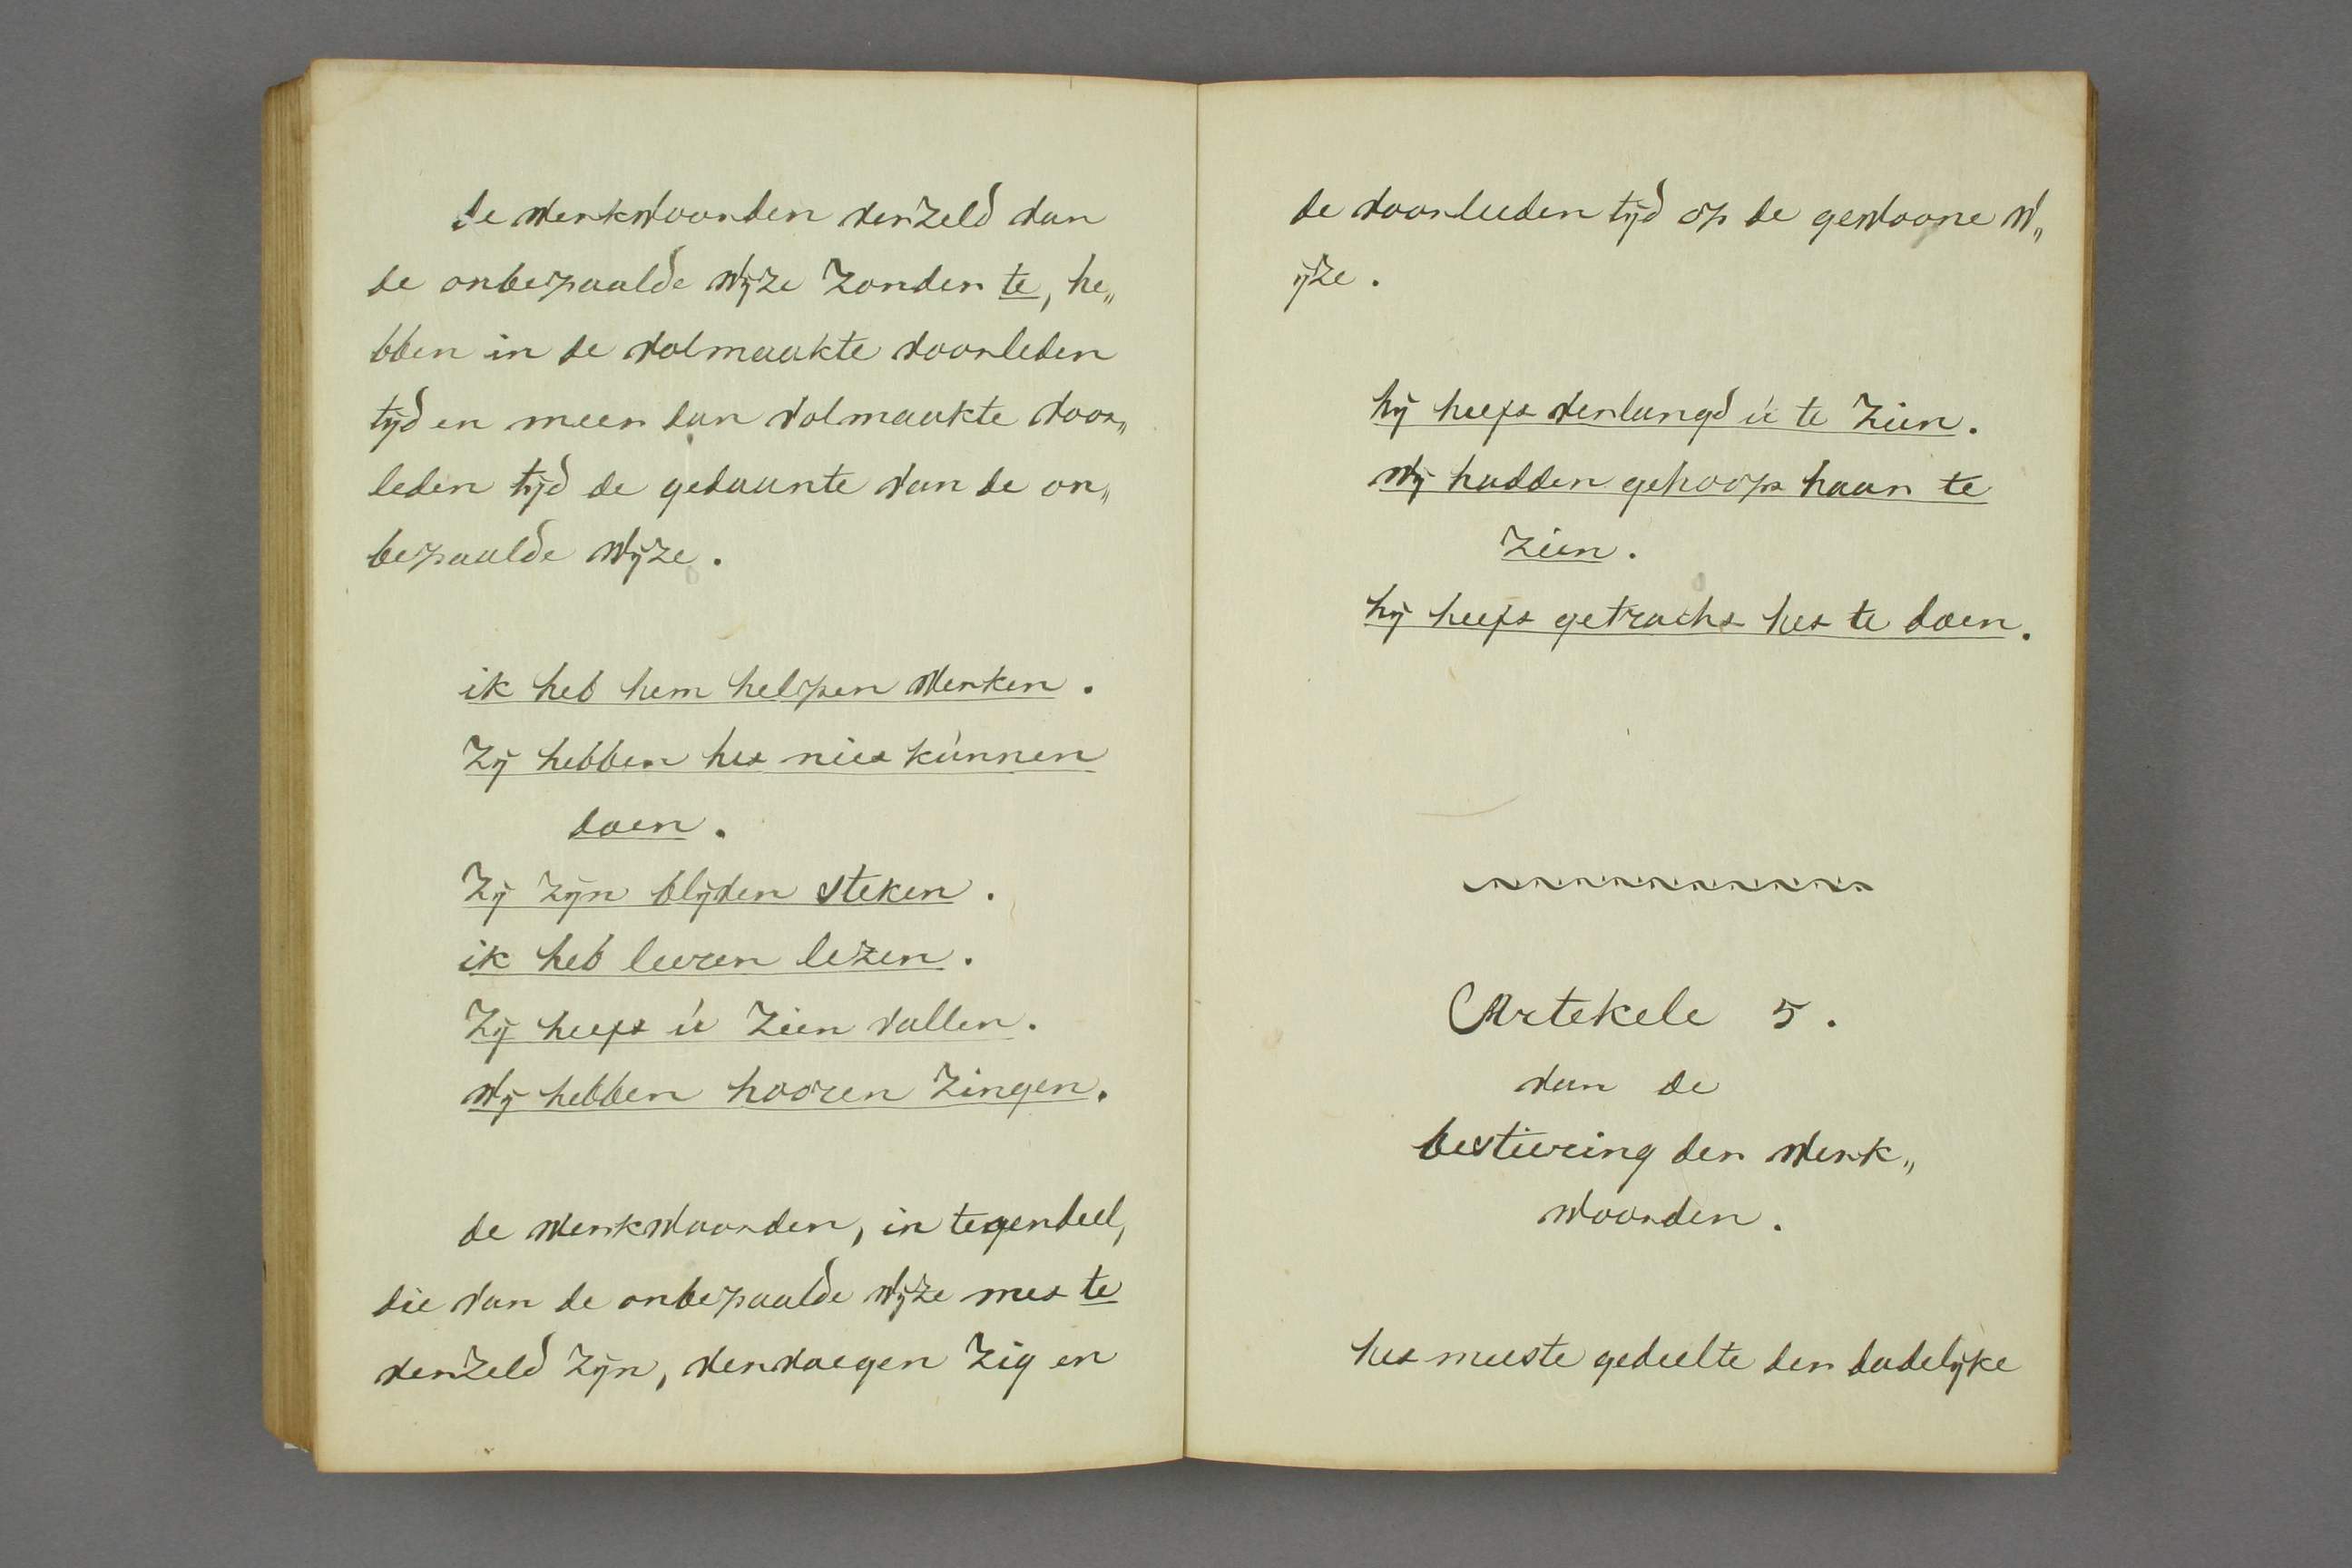 de werkwoorden verzeld van
de onbepaalde wyze zonder te, he„
bben in de volmaakte voorleden
tyd en meer dan volmaakte voor„
leden tyd de gedaante van de on„
bepaalde wyze.
ik heb hem helpen werken.
Zy hebben het niet kunnen
doen.
Zy zyn blyven steken.
ik heb leeren lezen.
Zy heeft u zien vallen.
wy hebben hooren zingen.
de werkwoorden, in tegendeel,
die van de onbepaalde wyze met te
verzeld zyn, vervoegen zig en
de voorleeden tyd op de gewoone w„
yze.
hy heeft verlangd u te zien.
wy hadden gehoopt haar te
zien.
hy heeft getracht het te doen.
Artekele 5.
van de
bestiering der werk„
woorden.
het meeste gedeelte der dadelyke